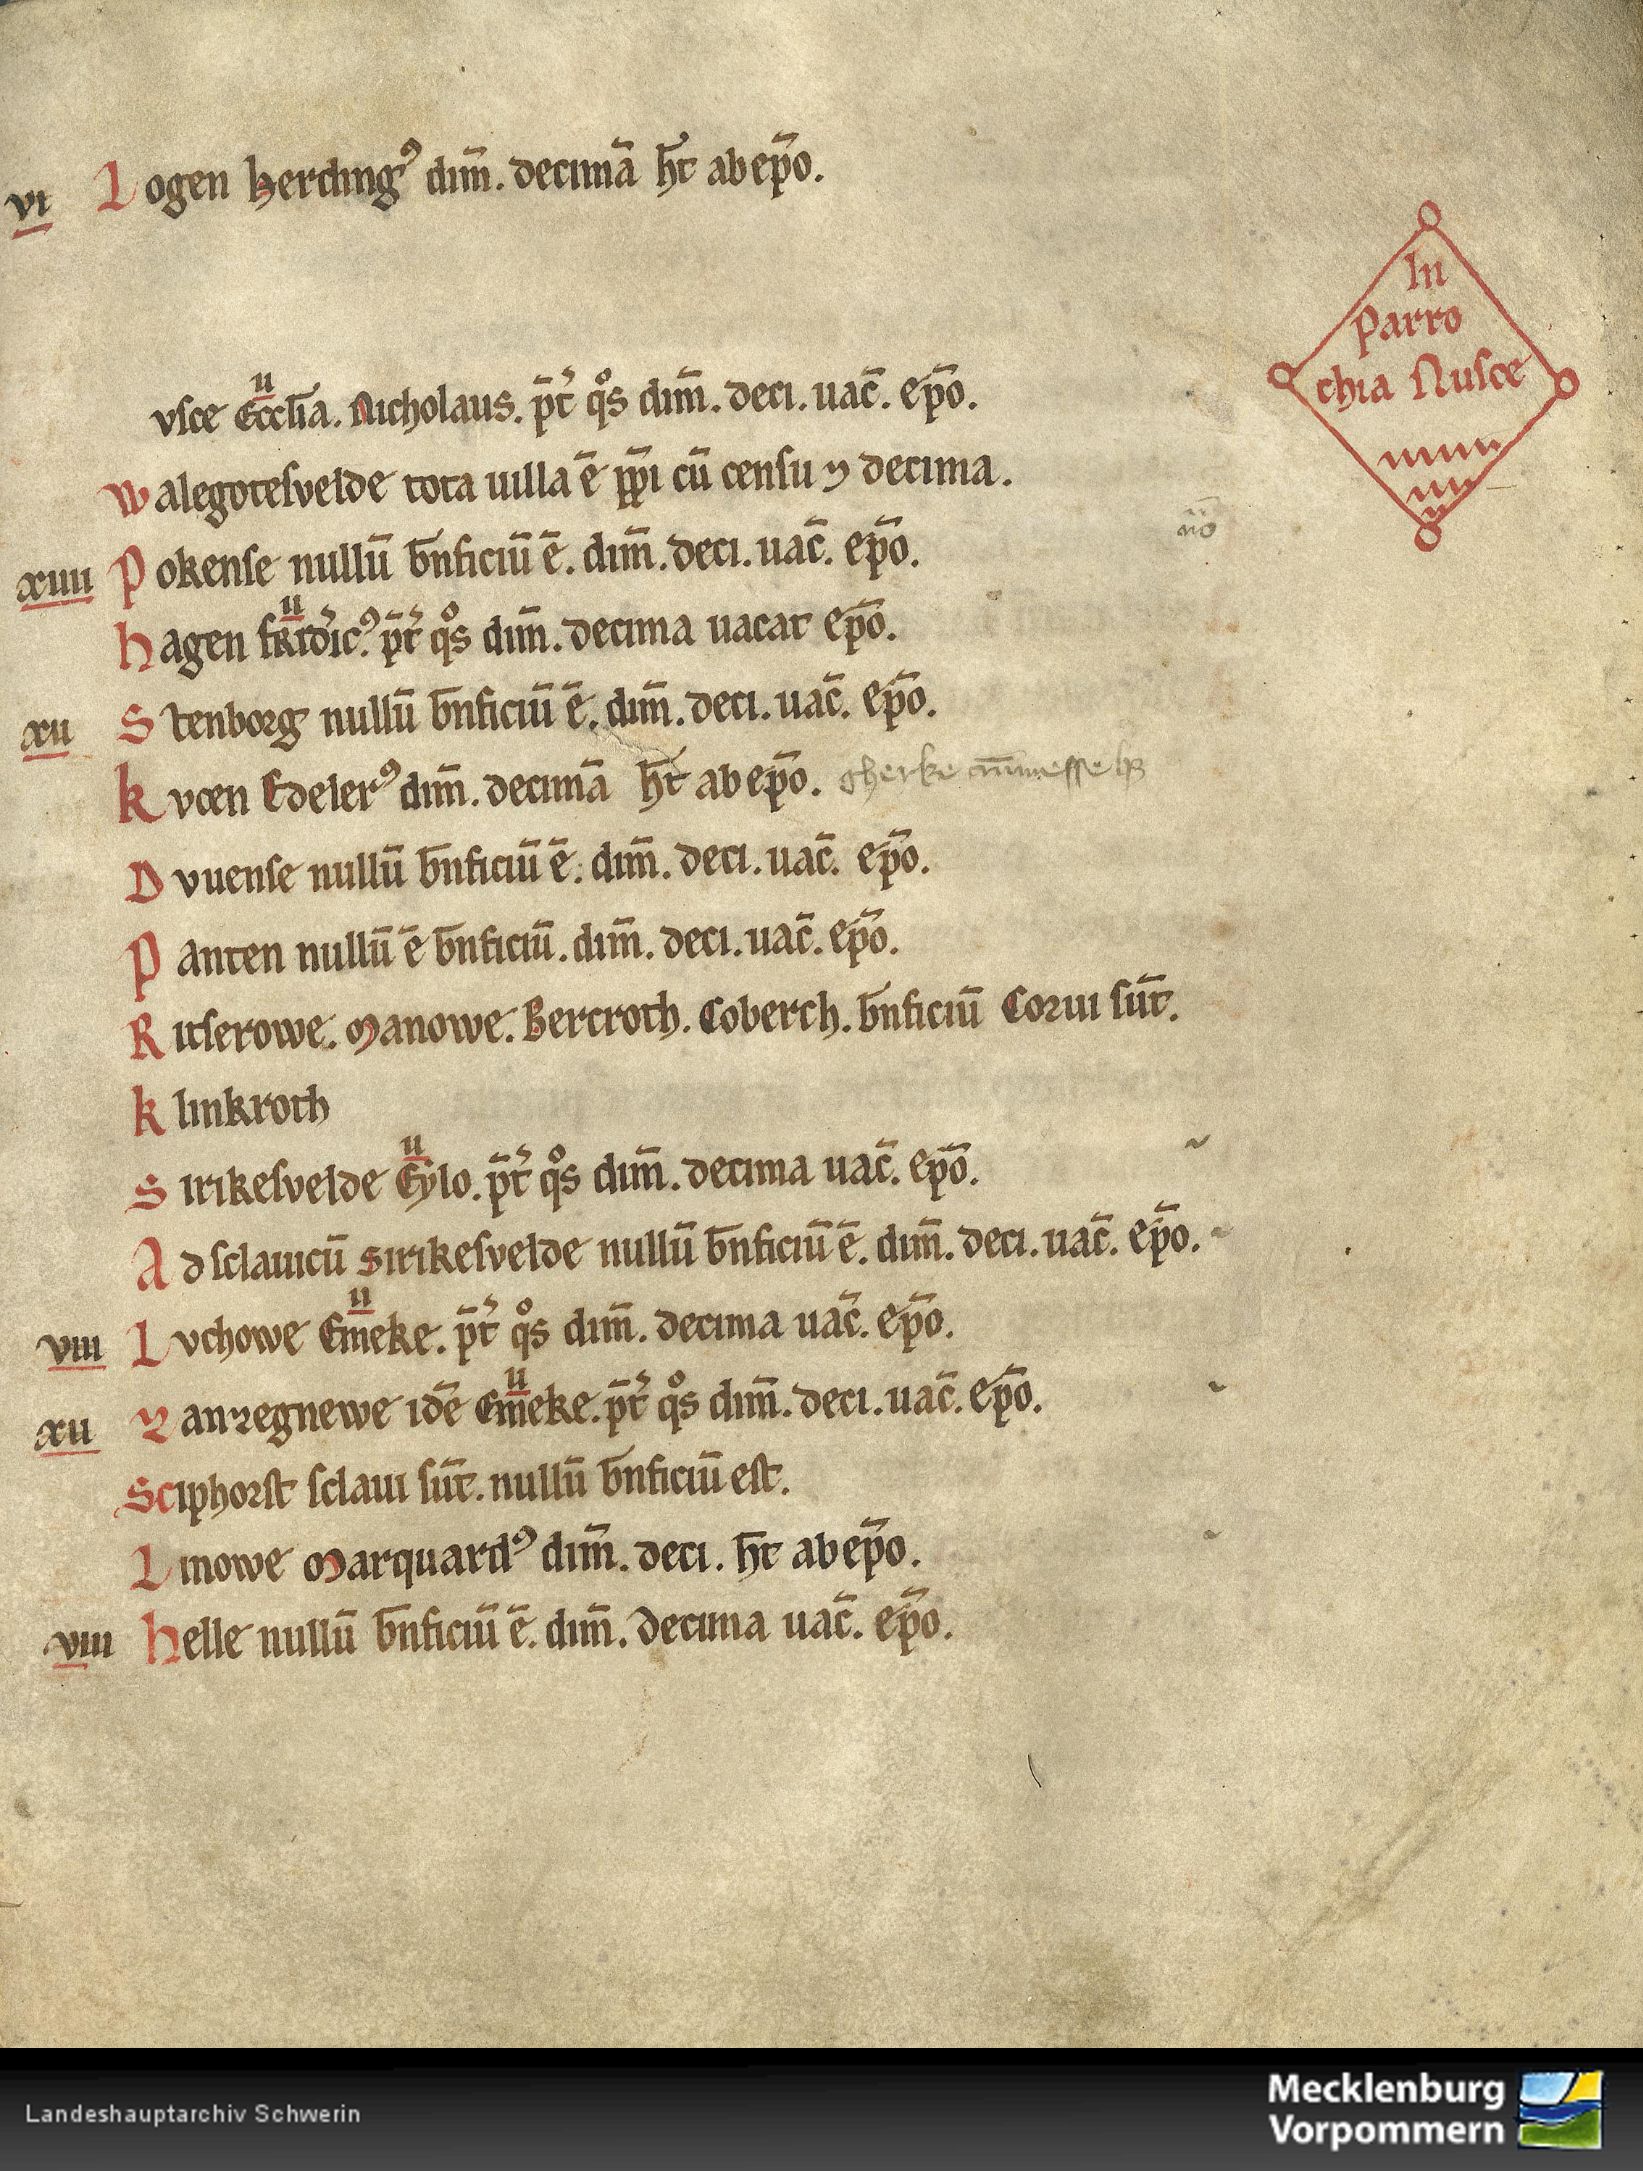 vi Logen Herding⁹ dim̄. decimā hт̄ ab ep̄o.
In
Parro
chia Nusce
ii
vsce Eccl̄ia. Nicholaus. p̄t̄ qͦs dim̄. deci. uac̄. ep̄o.
Walegotesvelde tota uilla ē pp̄i cū censu ⁊ decima.
n̄o
xiiii Pokense nullū bn̄ficiū ē. dim̄. deci. uac̄. ep̄o.
ii
Hagen frid̄ic⁹. p̄t̄ qͦs dim̄. decima uacat ep̄o.
xii Stenborg nullū bn̄ficiū ē. dim̄. deci. uac̄. ep̄o.
Kvcen Edeler⁹ dim̄. decimā ht̄ ab ep̄o. gherke
Dvuense nullū bn̄ficiū ē. dim̄. deci. uac̄. ep̄o.
Panten nullū ē bn̄ficiū. dim̄. deci. uac̄. ep̄o.
Ritserowe. Manowe. Bercroth. Coberch. bn̄ficiū Corui sūt.
Klinkroth
ii
Sirikesvelde Eylo. p̄t̄ qͦs dim̄. decima uac̄. ep̄o.
Ad sclauicū Sirikesvelde nullū bn̄ficiū ē. dim̄. deci. uac̄. ep̄o.
ii
viii Lvchowe Em̄eke. p̄t̄ qͦs dim̄. decima uac̄. ep̄o.
ii
xii Ranzegnewe idē Em̄eke. p̄t̄ qͦs dim̄. deci. uac̄. ep̄o.
Sciphorst sclaui sūt. nullū bn̄ficiū est.
Linowe Marquard⁹ dim̄. deci. ht̄ ab ep̄o.
viii Helle nullū bn̄ficiū ē. dim̄. decima uac̄. ep̄o.
Landeshauptarchiv Schwerin
Mecklenburg
Vorpommern